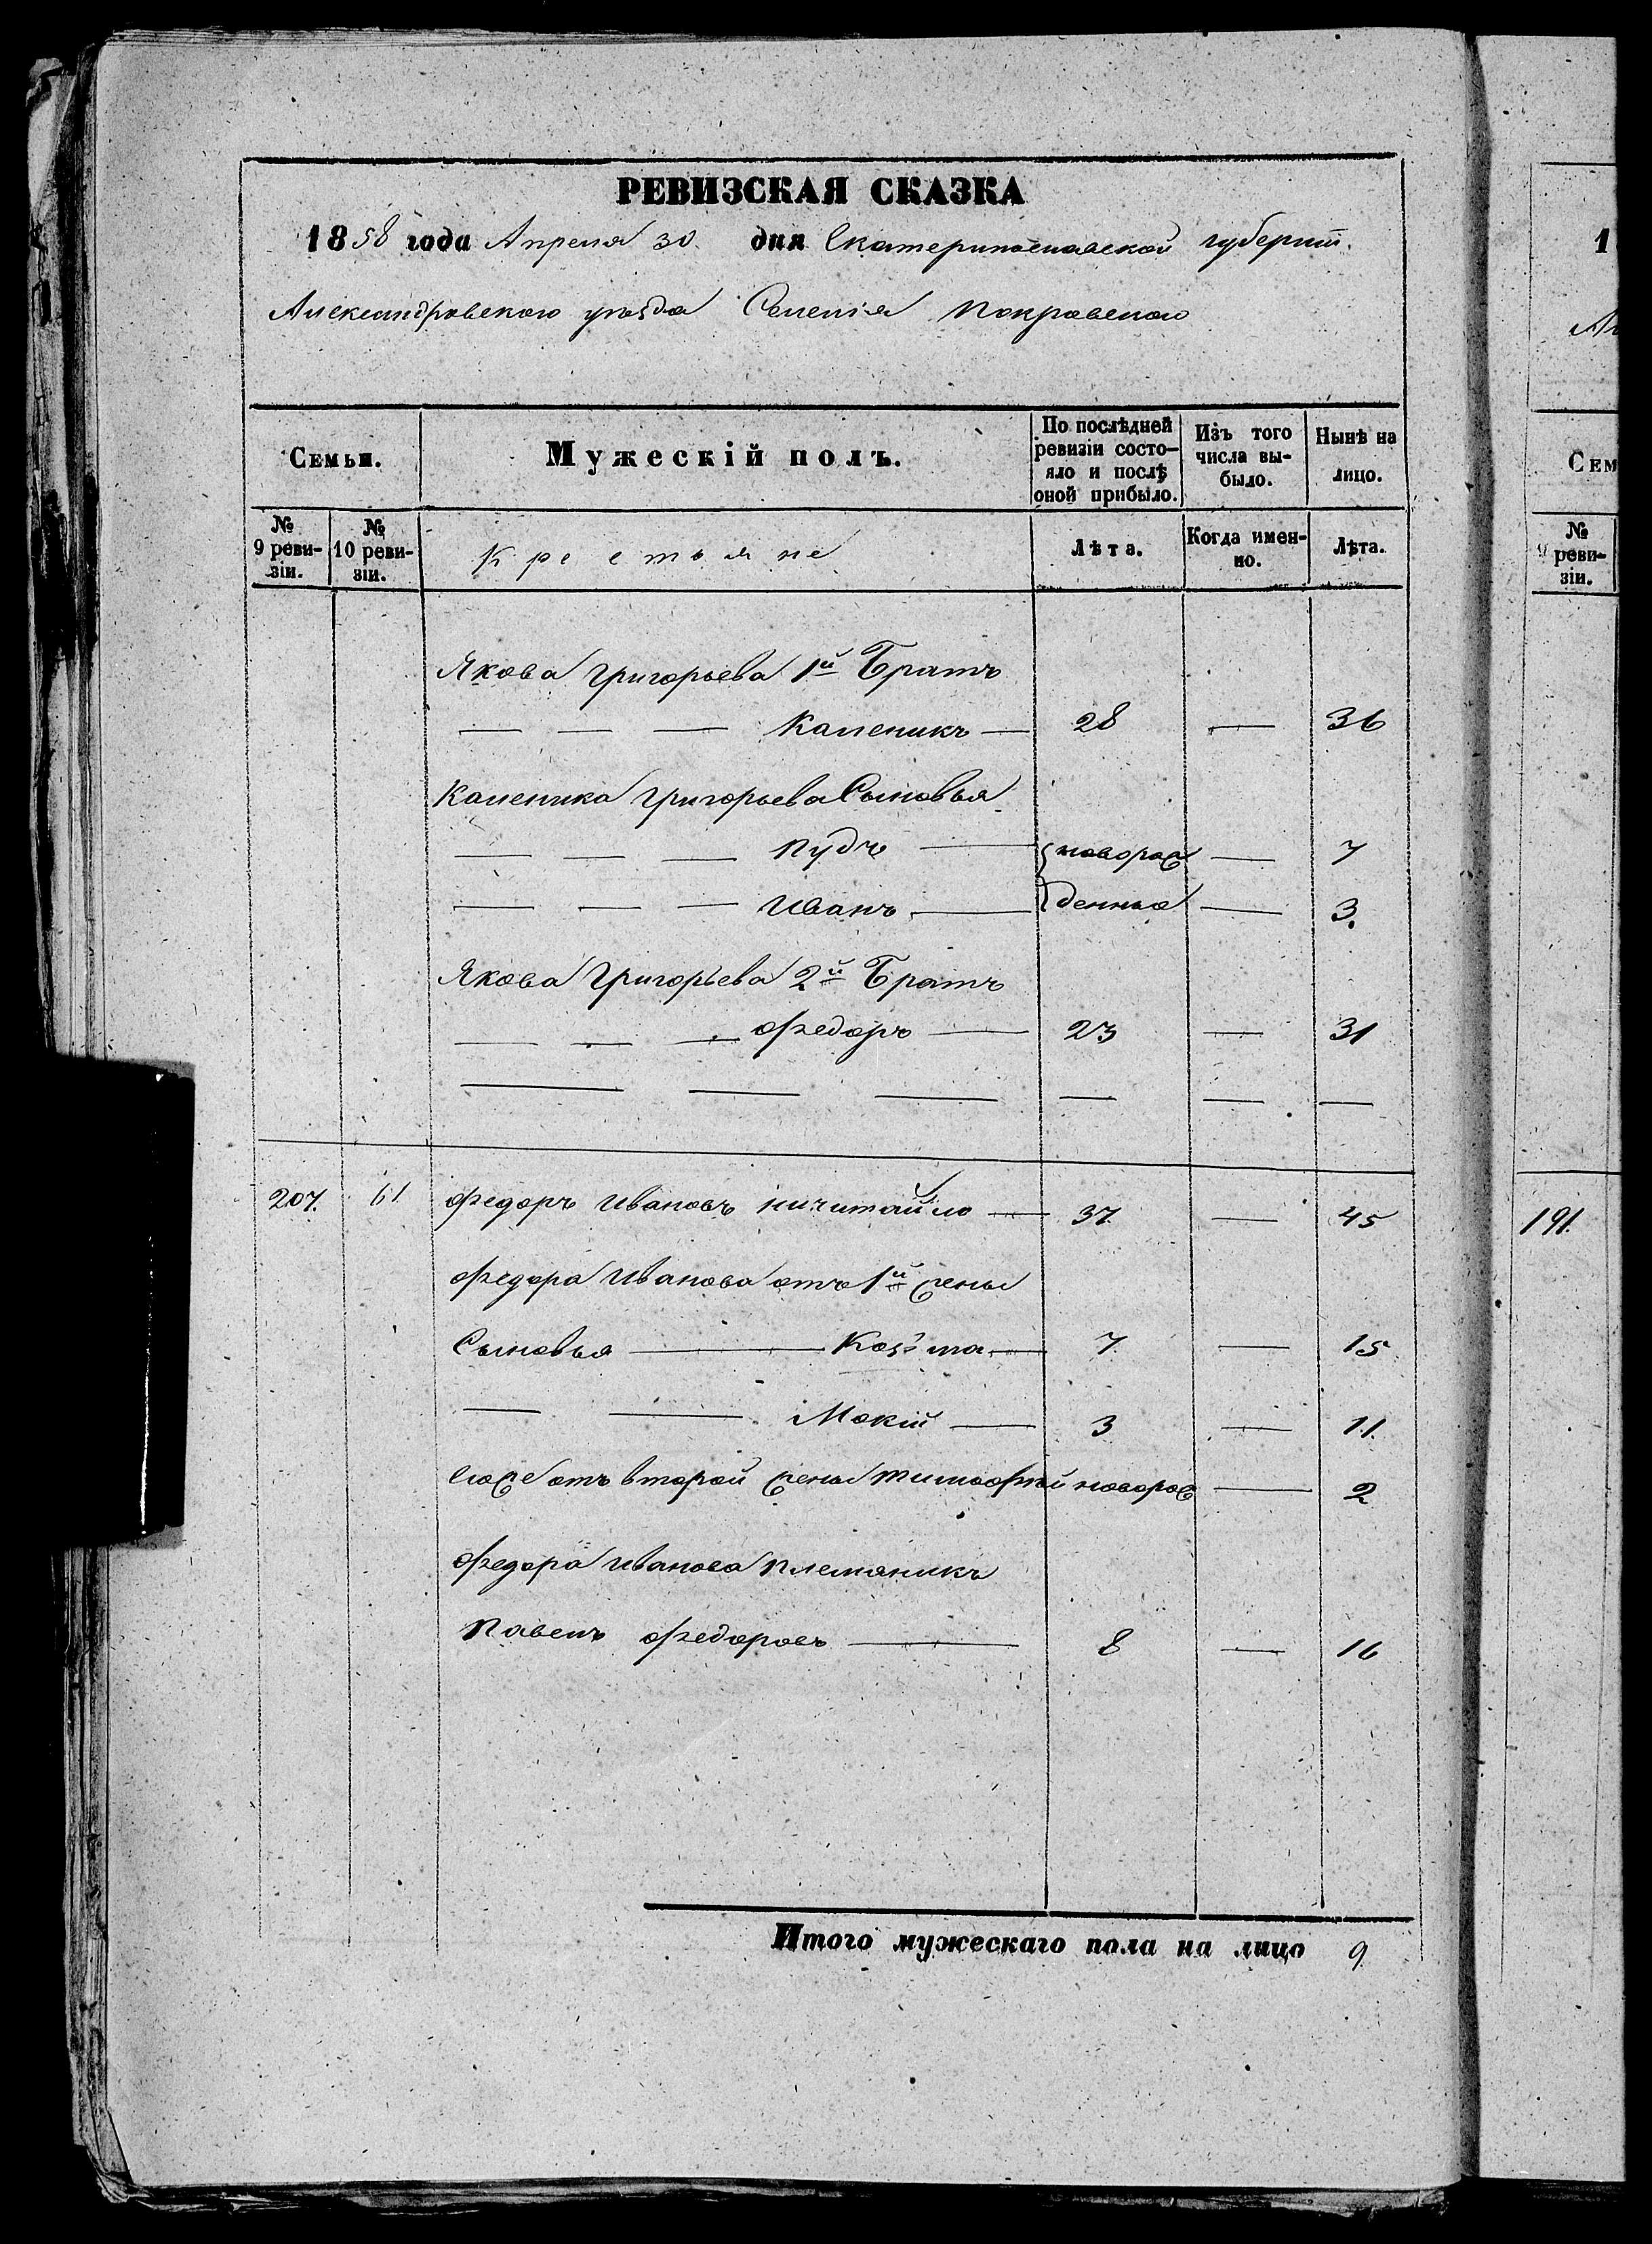 РЕВИЗСКАЯ СКАЗКА
1858 года Апреля 30 дня Екатеринославской губерніи.
Александровского уѣзда Селенія Покровского
Семьи.
Мужескій полъ.
По послѣдней ревизіи состояло и послѣ оной прибыло.
Изъ того числа выбыло.
Нынѣ на лицо.
№ 9 ревизіи.
№ 10 ревизіи.
Крестьяне
Лѣта.
Когда именно.
Лѣта.
Якова Григорьева 1й Братъ
— — — Каленикъ — 28 — 36
Каленика Григорьева Сыновья
— — — Пудъ — новорож — 7
— — — Иванъ — денные — 3.
Якова Григорьева 2й Братъ
— — — Федоръ — 23 — 31
— — — — — —
207. 61 Федоръ Ивановъ Ничитайло — 37 — 45
Федора Иванова отъ 1й жены
Сыновья — Козьма — 7 — 15
— — Мокій — 3 — 11.
его же отъ второй жены Тимофѣй новорож — 2
Федора Иванова Племяникъ
Павелъ Федоровъ — 8 — 16
Итого мужескаго пола на лицо 9
1
Ал
Сем
№ 9 ревизіи.
191.